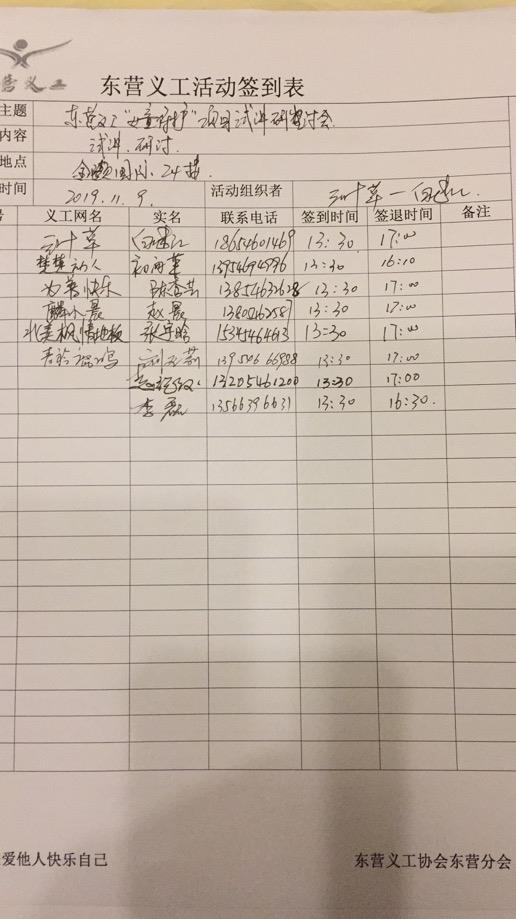 营义工
东营义工活动签到表
主题 东营义工"女童保护"项目试讲研讨会
内容 试讲.研讨
地点
时间 2019.11.9. 活动组织者 三叶草
义工网名 实名 联系电话 签到时间 签退时间 备注
三叶草 18654601469 13:30 17:00
13954694996 13:30 16:10
快乐 13854632628 13:30 17:00
麟小晨 赵晨 13805462587 13:30 17:00
北美枫情地板 张宇晗 15345464613 13:30 17:00
13950666988 13:30 17:00
13205461200 13:30 17:00
李磊 1356396631 13:30 16:30.
爱他人快乐自己 东营义工协会东营分会